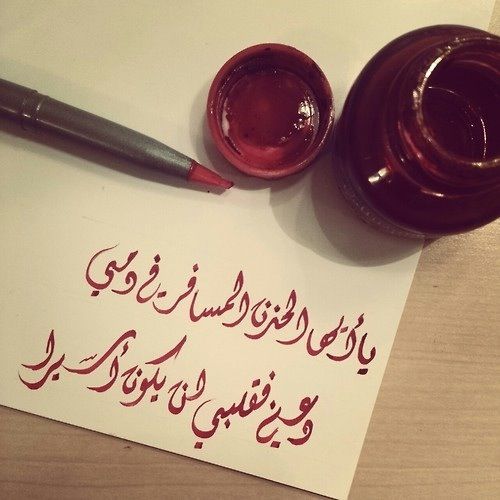 يا أيها الحزن المسافر في دمي
دعني فقلبي ان يكون أسيرا